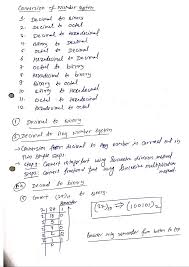 Conversion of Number System
1. Decimal to binary
2. Decimal to octal
3. Decimal to Hexadecimal
4. Binary to Decimal
5. Octal to Decimal
6. Hexadecimal to Decimal
7. Binary to octal
8. Octal to Binary
9. Hexadecimal to binary
10. Binary to
11. Octal to Hexadecimal
12. Hexadecimal to octal
① Decimal to Binary
① Decimal to Any Number System
→ Conversion from Decimal to Any number is carried out in
two steps
→ Step 1: Convert integer part using Successive division method
Convert fractional part using Successive multiplication
method.
Decimal to binary
Convert to binary.
Remainder
2 18
2 9
2 4
→ (100101)₂
Remainder write remainder from bottom to top